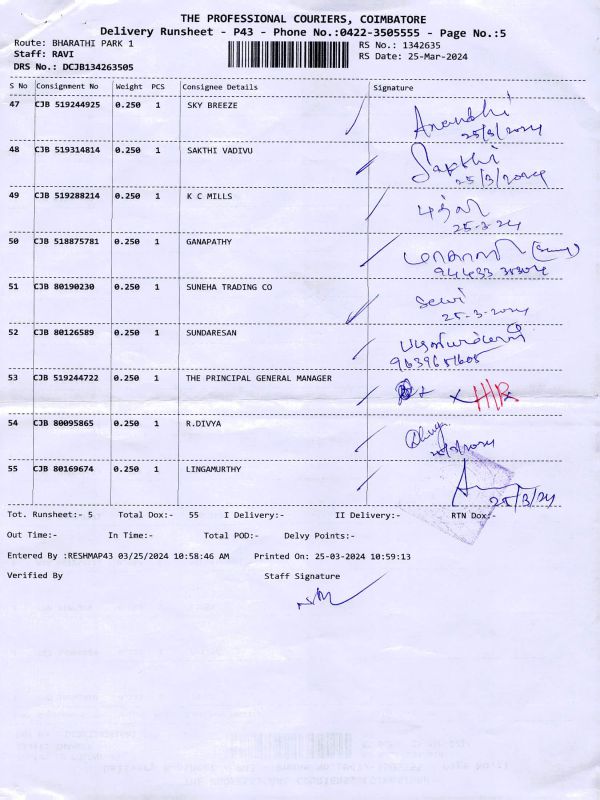 THE PROFESSIONAL COURIERS, COIMBATORE
Delivery Runsheet - P43 - Phone No.:0422-3505555 - Page No.:5
Route: BHARATHI PARK 1 RS No.: 1342635
Staff: RAVI RS Date: 25-Mar-2024
DRS No.: DCJB134263505
S No Consignment No Weight PCS Consignee Details Signature
47 CJB 519244925 0.250 1 SKY BREEZE Anandhi
25/3/2024
48 CJB 519314814 0.250 1 SAKTHI VADIVU Sakthi
25/3/2024
49 CJB 519288214 0.250 1 K C MILLS
25-3-24
50 CJB 518875781 0.250 1 GANAPATHY
51 CJB 80190230 0.250 1 SUNEHA TRADING CO Selvi
25-3-2024
52 CJB 80126589 0.250 1 SUNDARESAN
53 CJB 519244722 0.250 1 THE PRINCIPAL GENERAL MANAGER
54 CJB 80095865 0.250 1 R.DIVYA Dhivya
55 CJB 80169674 0.250 1 LINGAMURTHY
25/3/24
Tot. Runsheet:- 5 Total Dox:- 55 I Delivery:- II Delivery:- RTN Dox:-
Out Time:- In Time:- Total POD:- Delvy Points:-
Entered By :RESHMAP43 03/25/2024 10:58:46 AM Printed On: 25-03-2024 10:59:13
Verified By Staff Signature